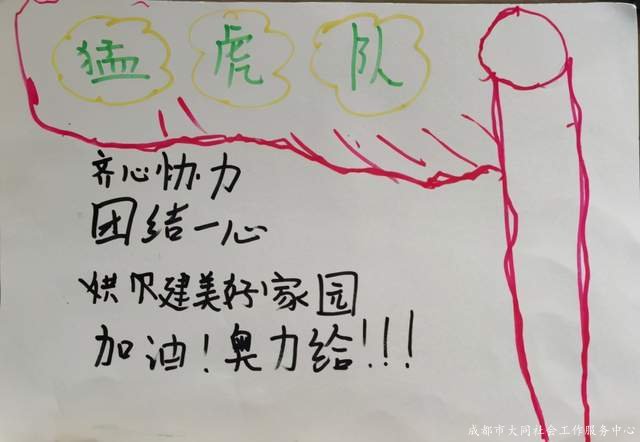 猛虎队
齐心协力
团结一心
建美好家园
加油！奥力给!!!
成都市大同社会工作服务中心